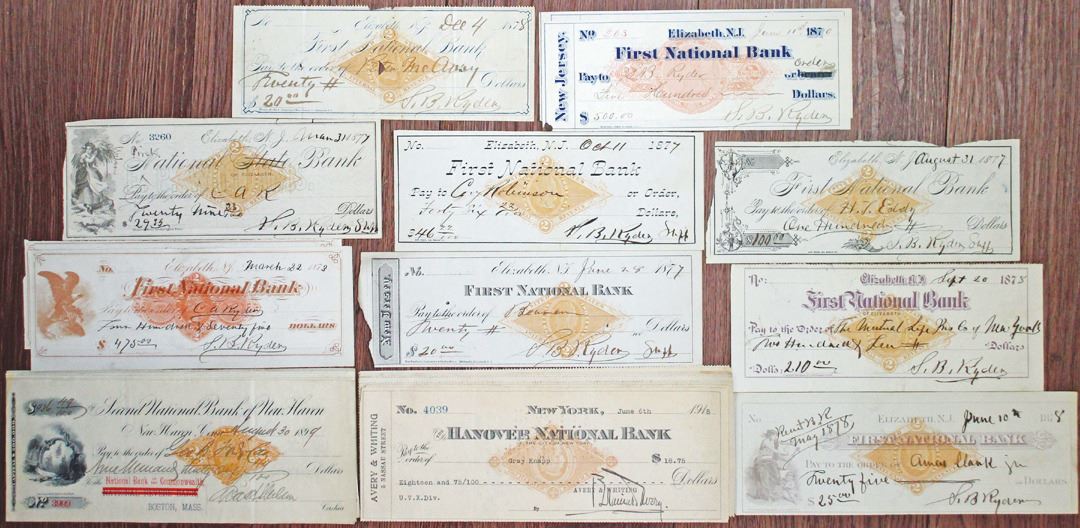 No.
Elizabeth, N.J. Dec 4 1878
First National Bank
Pay to the order of McAvoy
Twenty Dollars
$20.00 S. B. Ryder
New Jersey.
No 303 Elizabeth, N.J. June 1870
First National Bank
Pay to S. B. Ryder order
or bearer
Five Hundred Dollars.
$500.00 S. B. Ryder
No. 3260 Elizabeth N. J. Mar 31 1877
First
National State Bank
OF ELIZABETH
Pay to the order of C A R
Twenty Nine Dollars
$29 S. B. Ryder
No. Elizabeth, N.J. Oct 11 1877
First National Bank
Pay to Robinson or Order,
Forty Six Dollars,
$46 S. B. Ryder
Elizabeth, N.J. August 31 1877
First National Bank
Pay to the order of H. T. Eddy
One Hundred Dollars
$100.00 S. B. Ryder
No. Elizabeth, NJ. March 22 1873
First National Bank
Pay to the order of C A Ryder
Four Hundred & Seventy five DOLLARS
$475.00 S. B. Ryder
New Jersey
No. Elizabeth, N.J. June 28 1877
FIRST NATIONAL BANK
Pay to the order of
Twenty Dollars
$20.00 S. B. Ryder
No. Elizabeth, N.J. Sept 20 1875
First National Bank
OF ELIZABETH
Pay to the Order of The Mutual Life Ins Co of New York
Two Hundred & Ten Dollars
Dolls. 210.00 S. B. Ryder
Second National Bank of New Haven
New Haven, Conn. August 30 1899
Pay to the order of
Nine Hundred Dollars
To the National Bank of the Commonwealth
BOSTON, MASS. Cashier
AVERY & WHITING
5 NASSAU STREET
No. 4039 NEW YORK, June 6th 1918
The HANOVER NATIONAL BANK
OF THE CITY OF NEW YORK
Pay to the
order of Gray Knapp $18.75
Eighteen and 75/100 Dollars
U.T.X.Div. AVERY & WHITING
By
Rent B.R
May 1878
ELIZABETH, N.J. June 10th 1878
FIRST NATIONAL BANK
PAY TO THE ORDER OF Amos Clark jr
Twenty five DOLLARS
$25.00 S. B. Ryder